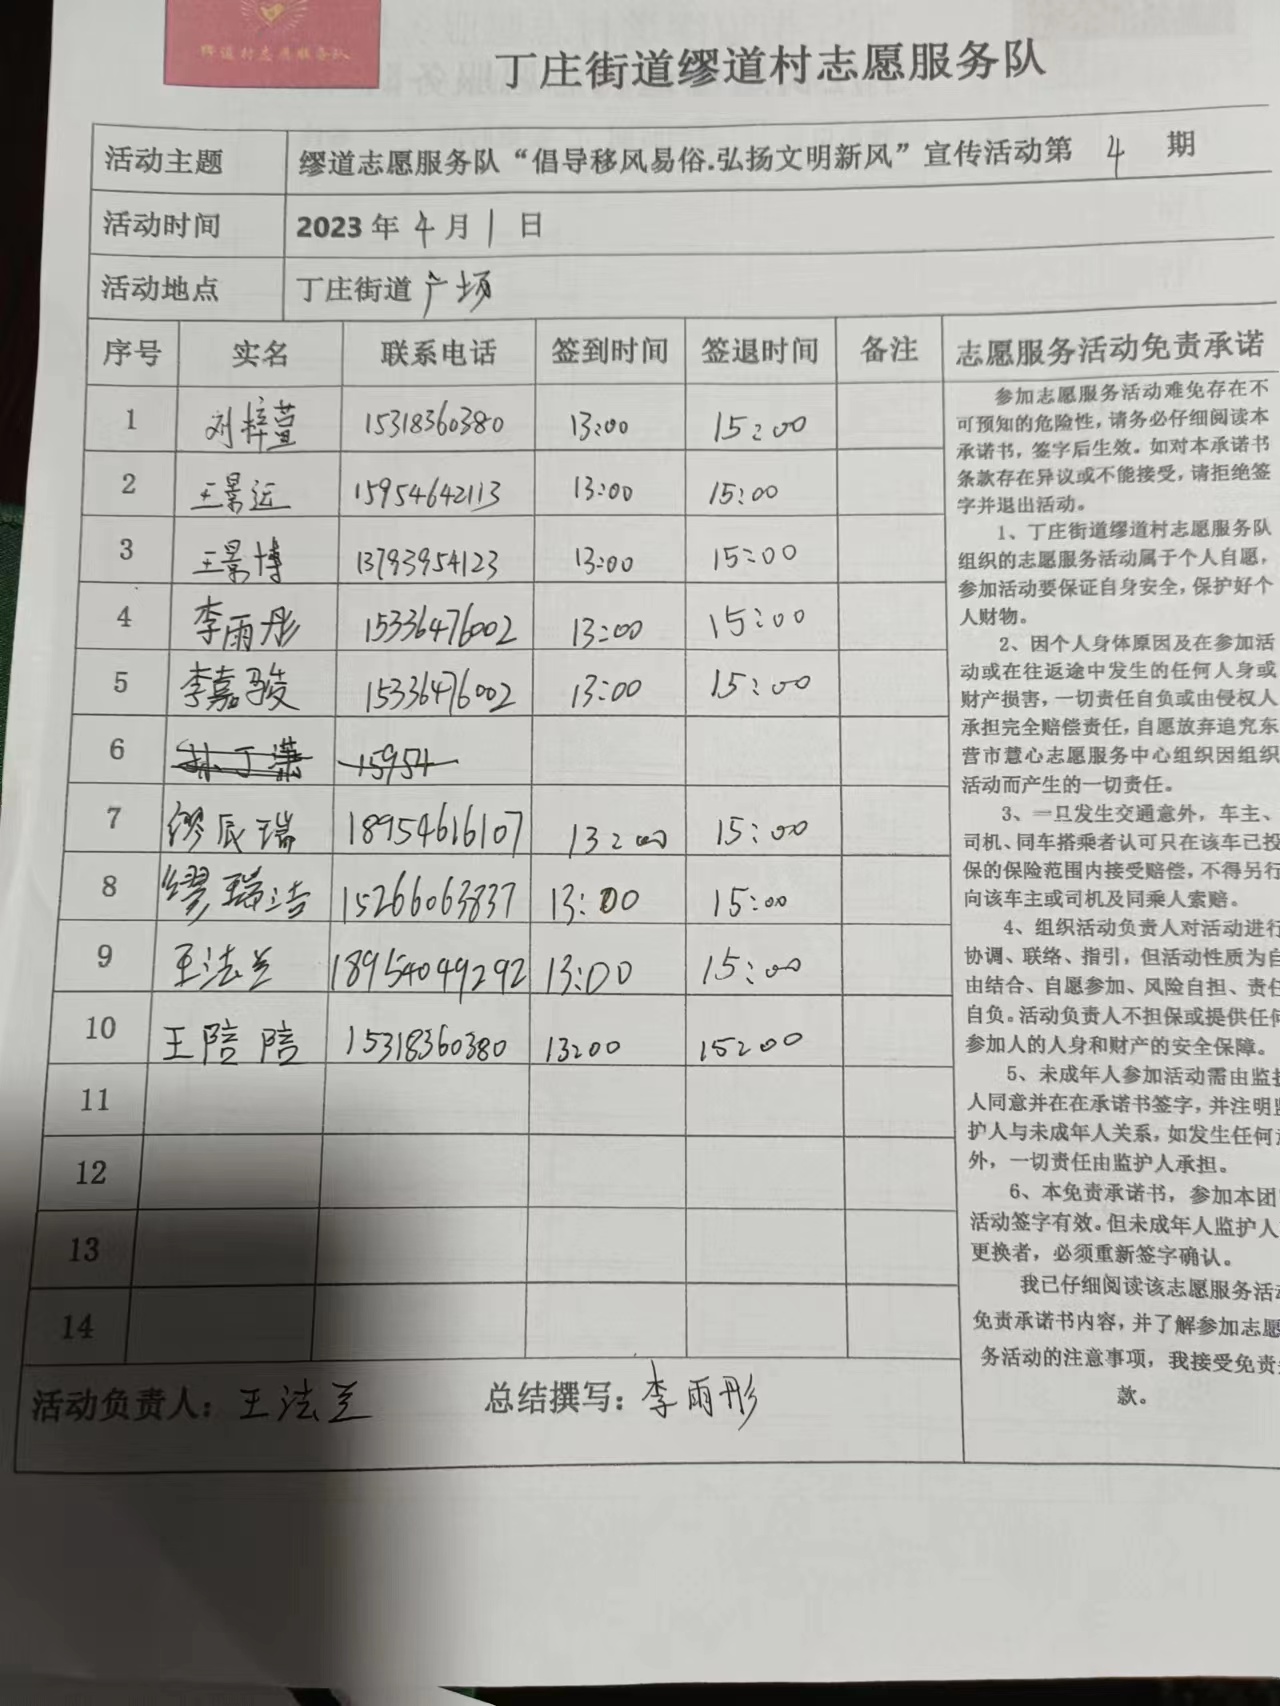 缪道村志愿服务队
丁庄街道缪道村志愿服务队
活动主题 缪道志愿服务队“倡导移风易俗.弘扬文明新风”宣传活动第 4 期
活动时间 2023 年 4 月 1 日
活动地点 丁庄街道 广场
序号 实名 联系电话 签到时间 签退时间 备注
1 刘梓萱 15318360380 13:00 15:00
2 王景远 15954642113 13:00 15:00
3 王景博 13793954123 13:00 15:00
4 李雨彤 15336476002 13:00 15:00
5 李嘉骏 15336476002 13:00 15:00
6 孙丁潇 15954
7 缪辰瑞 18954616107 13:00 15:00
8 缪瑞洁 15266063837 13:00 15:00
9 王法兰 18954049292 13:00 15:00
10 王陪陪 15318360380 13:00 15:00
11
12
13
14
活动负责人：王法兰 总结撰写：李雨彤
志愿服务活动免责承诺
参加志愿服务活动难免存在不
可预知的危险性，请务必仔细阅读本
承诺书，签字后生效。如对本承诺书
条款存在异议或不能接受，请拒绝签
字并退出活动。
1、丁庄街道缪道村志愿服务队
组织的志愿服务活动属于个人自愿，
参加活动要保证自身安全，保护好个
人财物。
2、因个人身体原因及在参加活
动或在往返途中发生的任何人身或
财产损害，一切责任自负或由侵权人
承担完全赔偿责任，自愿放弃追究东
营市慧心志愿服务中心组织因组织
活动而产生的一切责任。
3、一只发生交通意外，车主、
司机、同车搭乘者认可只在该车已投
保的保险范围内接受赔偿，不得另行
向该车主或司机及同乘人索赔。
4、组织活动负责人对活动进行
协调、联络、指引，但活动性质为自
由结合、自愿参加、风险自担、责任
自负。活动负责人不担保或提供任何
参加人的人身和财产的安全保障。
5、未成年人参加活动需由监护
人同意并在在承诺书签字，并注明监
护人与未成年人关系，如发生任何意
外，一切责任由监护人承担。
6、本免责承诺书，参加本团
活动签字有效。但未成年人监护人
更换者，必须重新签字确认。
我已仔细阅读该志愿服务活动
免责承诺书内容，并了解参加志愿
务活动的注意事项，我接受免责
款。